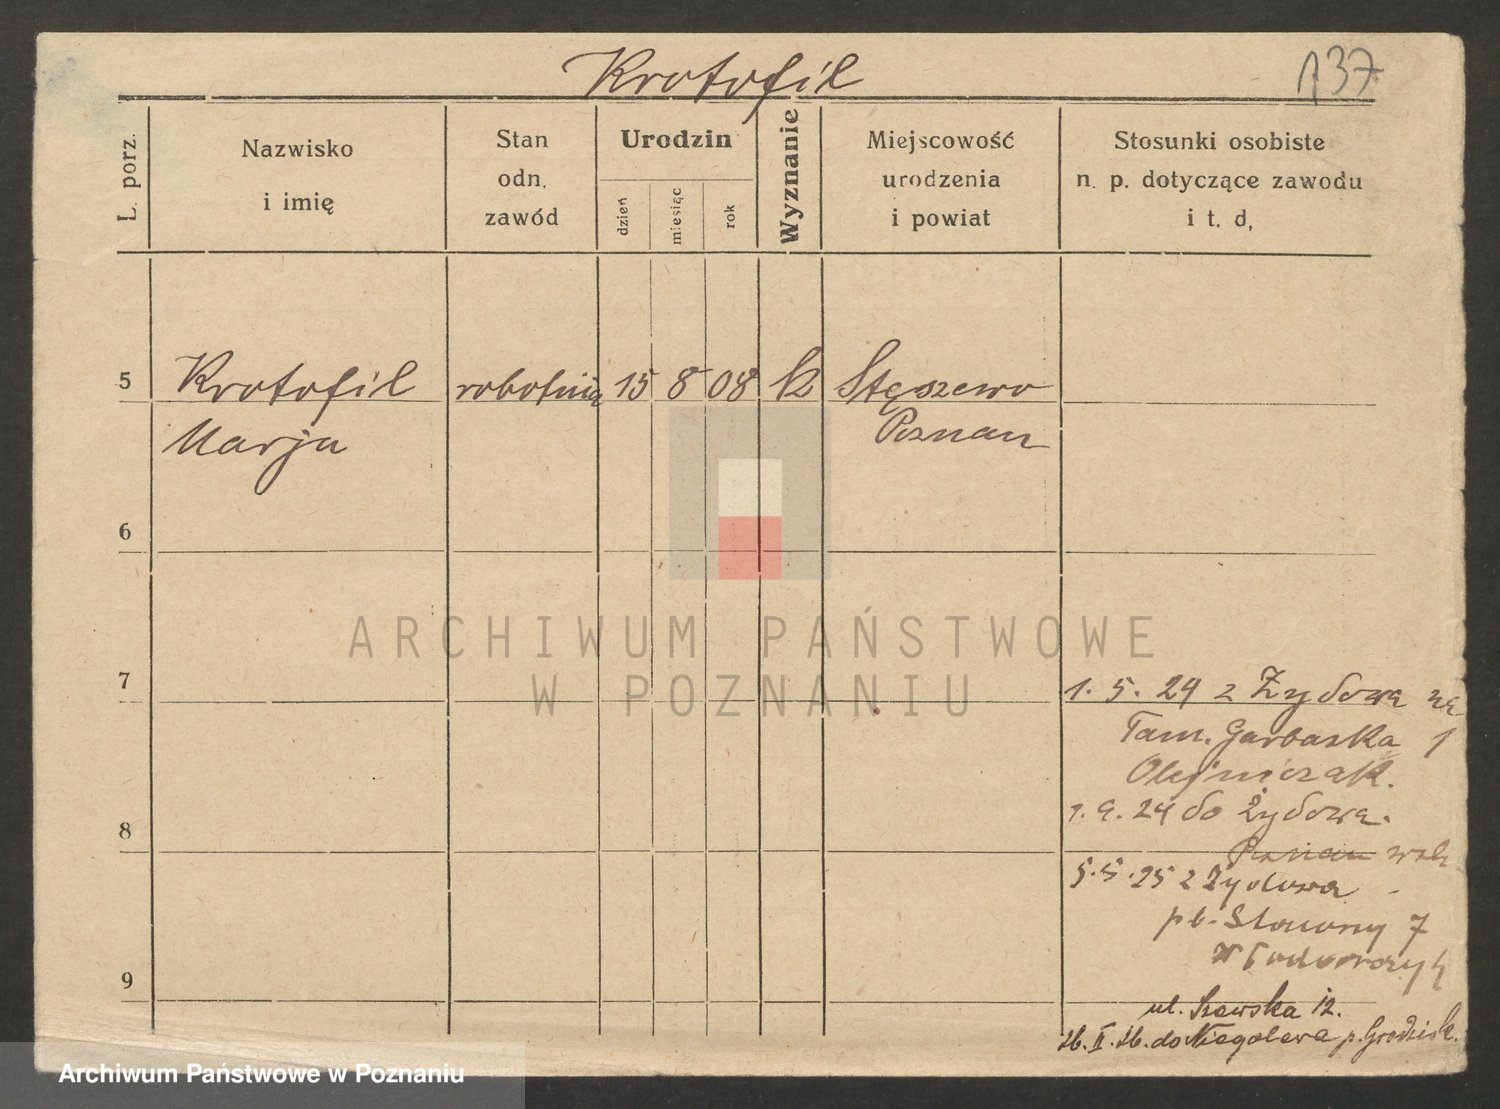 Krotofil
137
L. porz.
Nazwisko
i imię
Stan
odn.
zawód
Urodzin
dzień
miesiąc
rok
Wyznanie
Miejscowość
urodzenia
i powiat
Stosunki osobiste
n. p. dotyczące zawodu
i t. d,
5
Krotofil
Marja
robotnica
15
8
08
k
Stęszewo
Poznan
6
ARCHIWUM PAŃSTWOWE
W POZNANIU
7
1. 5. 24 z Żydowa na
Tam. Garbaska 1
Olejniczak.
1. 9. 24 do Żydowa.
8
Poznan
5.5.25 z Żydowa
7
9
ul. Szewska 12.
26. II. 26. do Niegolewa p. Grodzisk.
Archiwum Państwowe w Poznaniu